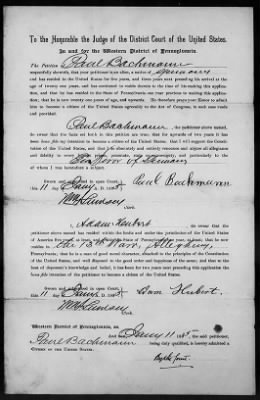 To the Honorable the Judge of the District Court of the United States,
In and for the Western District of Pennsylvania.
The Petition of Paul Bachmann
respectfully sheweth, that your petitioner is an alien, a native of Germany
has resided in the United States for five years, and three years next preceding his arrival at the
age of twenty one years, and has continued to reside therein to the time of his making this application,
and that he has resided in the State of Pennsylvania one year previous to making this
application; that he is now twenty one years of age, and upwards. He therefore prays your Honor to admit
him to become a citizen of the United States agreeably to the Act of Congress, in such case made
and provided.
I, Paul Bachmann, the petitioner above named,
do swear that the facts set forth in this petition are true; that for upwards of two years it has
been bona fide my intention to become a citizen of the United States; that I will support the Constitution
of the United States, and that I do absolutely and entirely renounce and abjure all allegiance
and fidelity to every foreign prince, potentate, state or sovereignty, and particularly to the
Emperor of Germany
of whom I was a subject.
Sworn and subscribed in open Court, Paul Bachmann
this 11 Jany
Clerk.
I, Adam Hubert, do swear that the petitioner
above named has resided within the limits and under the jurisdiction of the United States
of America five years, at least, and within the State of Pennsylvania one year, at least; that he now resides
in the 13th Ward, Allegheny,
Pennsylvania, and is a man of good moral character, attached to the principles of the Constitution
of the United States, and well disposed to the good order and happiness of the same; and that to the
best of deponent's knowledge and belief, it has been for two years next preceding this application
bona fide intention of the petitioner to become a citizen of the United States.
Sworn and subscribed in open Court, Adam Hubert.
this 11 Jany
Clerk.
Western District of Pennsylvania,
And now, Jany 11, the said petitioner,
Paul Bachmann being duly qualified, is hereby admitted a
Citizen of the United States.
By the Court